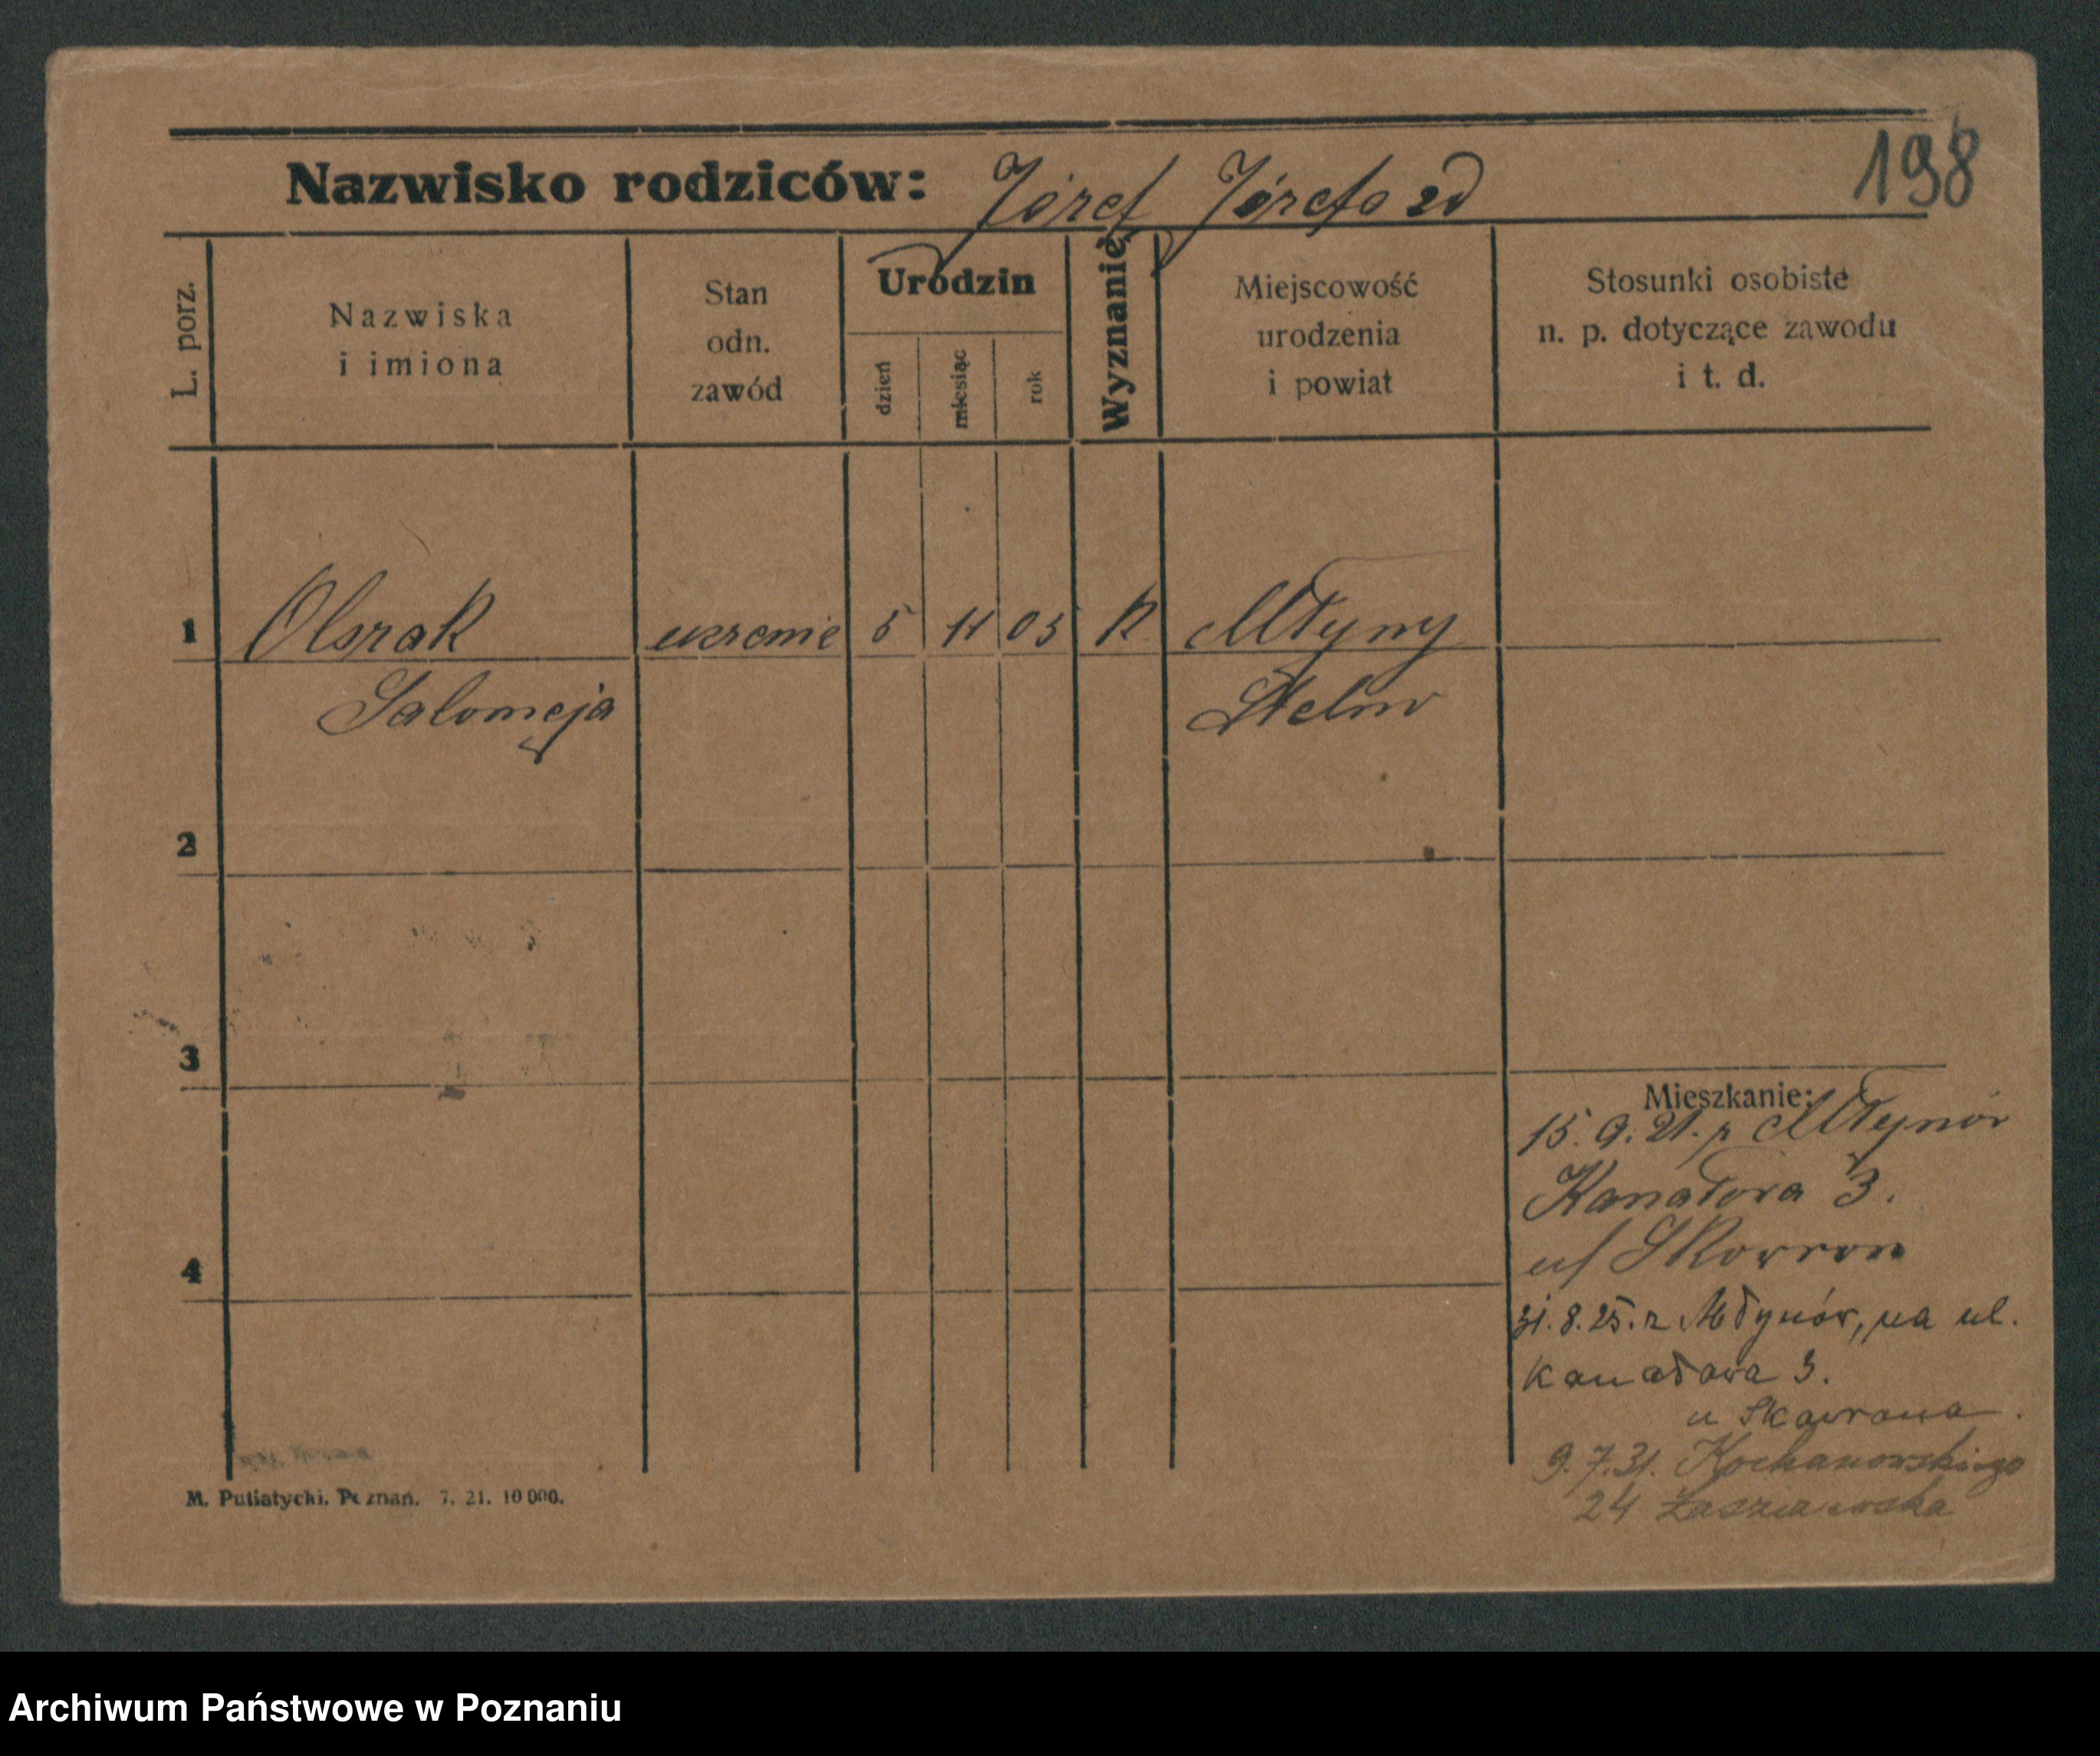 198
Nazwisko rodziców: Józef Józefa zd
L. porz.
Nazwiska
i imiona
Stan
odn.
zawód
Urodzin
dzień
miesiąc
rok
Wyznanie
Miejscowość
urodzenia
i powiat
Stosunki osobiste
n. p. dotyczące zawodu
i t. d.
1 Olszak uczenie 5 11 05 k Młyny
Salomeja Strelno
2
3
Mieszkanie:
15. 9. 21. z Młynów
Kanałowa 3.
u/ Skowron
4
31. 8. 25. z Młynów, na ul.
Kanałowa 3.
u Skowrona.
9. 7. 31. Kochanowskiego
24
M. Putiatycki. Poznań. 7. 21. 10 000.
Archiwum Państwowe w Poznaniu